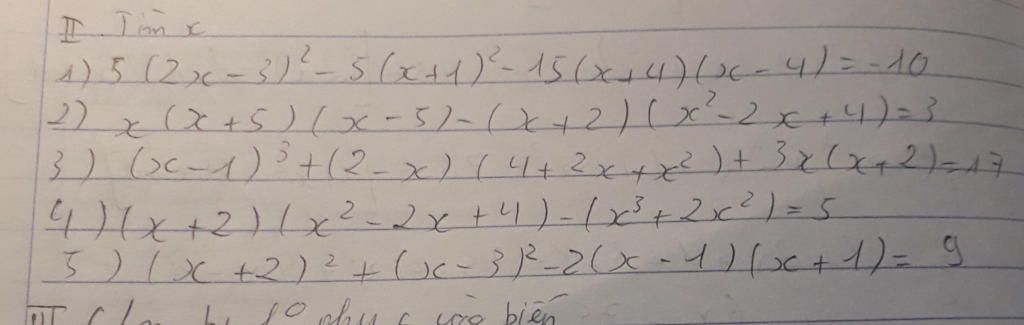 II. Tìm x
1) 5(2x-3)²-5(x+1)²-15(x+4)(x-4)=-10
2) x(x+5)(x-5)-(x+2)(x²-2x+4)=3
3) (x-1)³+(2-x)(4+2x+x²)+3x(x+2)=17
4) (x+2)(x²-2x+4)-(x³+2x²)=5
5) (x+2)²+(x-3)²-2(x-1)(x+1)=9
III biến